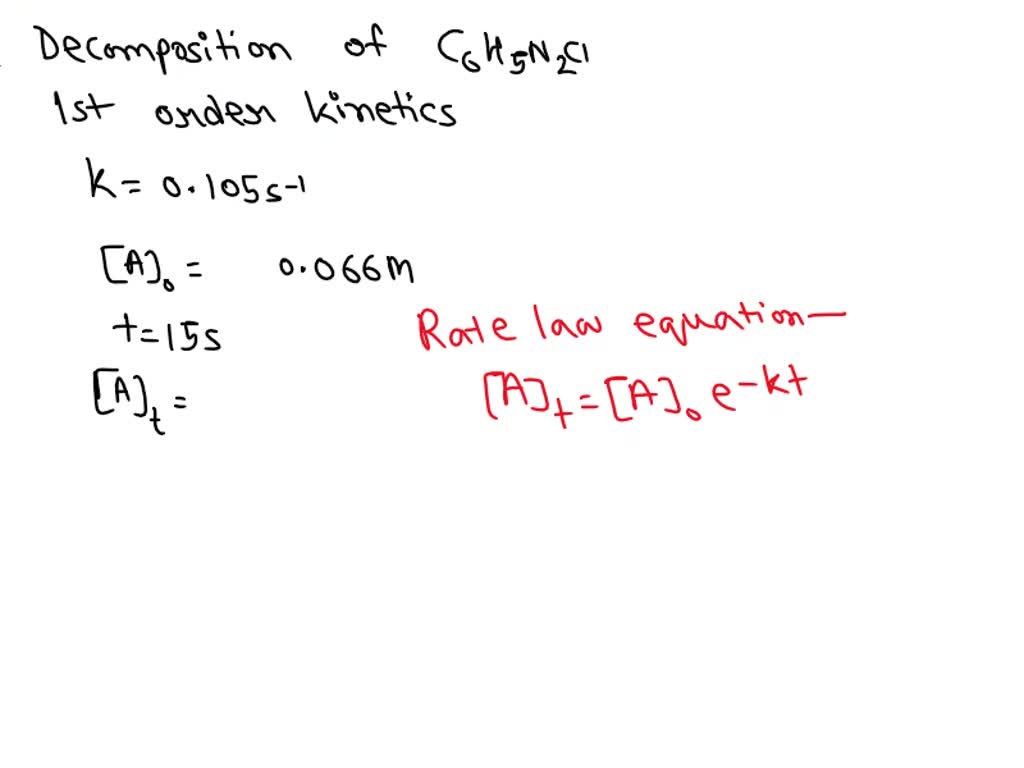 Decomposition of C₆H₅N₂Cl
1st order kinetics
k = 0.105 s⁻¹
[A]₀ = 0.066 M
t = 15 s
Rate law equation —
[A]ₜ =
[A]ₜ = [A]₀ e⁻ᵏᵗ